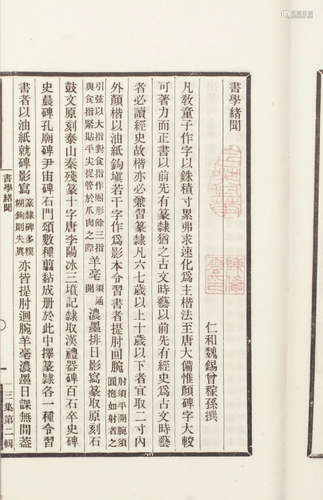 書學緒聞
仁和魏錫曾稼孫撰
凡敎童子作字以銖積寸累弗求速化爲主楷法至唐大備惟顏碑字大較
可著力而正書以前先有篆隸猶之古文時藝以前先有經史爲古文時藝
者必讀經史故楷亦必兼習篆隸凡六七歲以上十歲以下者宜取二寸內
外顏楷以油紙鉤塡若干字作爲影本令習書者提肘回腕肘須平開腕須圓抱如射者之
引弦以大指對食指作形餘三指與食指緊貼平尖捉管於爪肉之際羊毫須通開濃墨排日影寫篆取原刻石
鼓文原刻泰山秦殘篆十字唐李陽冰三墳記隸取漢禮器碑百石卒史碑
史晨碑孔廟碑尹宙碑石門頌數種剪黏成册於此中擇篆隸各一種令習
書者以油紙就碑影寫篆隸碑多模糊鉤則失眞亦皆提肘迴腕羊毫濃墨日課無間蓋
書學緒聞
三集第二輯